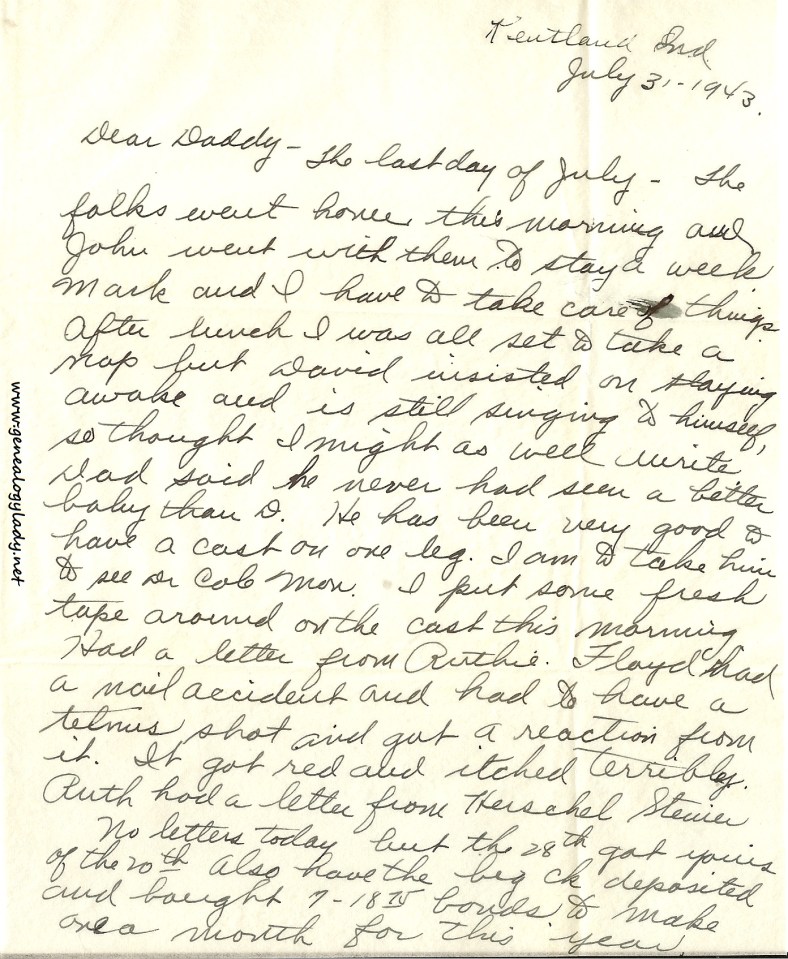 Kentland Ind.
July 31-1943.
Dear Daddy - The last day of July - The
folks went home this morning and
John went with them to stay a week
Mark and I have to take care of things
After lunch I was all set to take a
nap but David insisted on staying
awake and is still singing to himself,
so thought I might as well write
Dad said he never had seen a better
baby than D. He has been very good to
have a cast on one leg. I am to take him
to see Dr Cole Mon. I put some fresh
tape around on the cast this morning
Had a letter from Ruthie. Floyd had
a nail accident and had to have a
tetnus shot and got a reaction from
it. It got red and itched terribly.
Ruth had a letter from Herschel Steiner
No letters today but the 28th got yours
of the 20th Also have the big ck deposited
and bought 7-18 75 bonds to make
one a month for this year
www.genealogylady.net